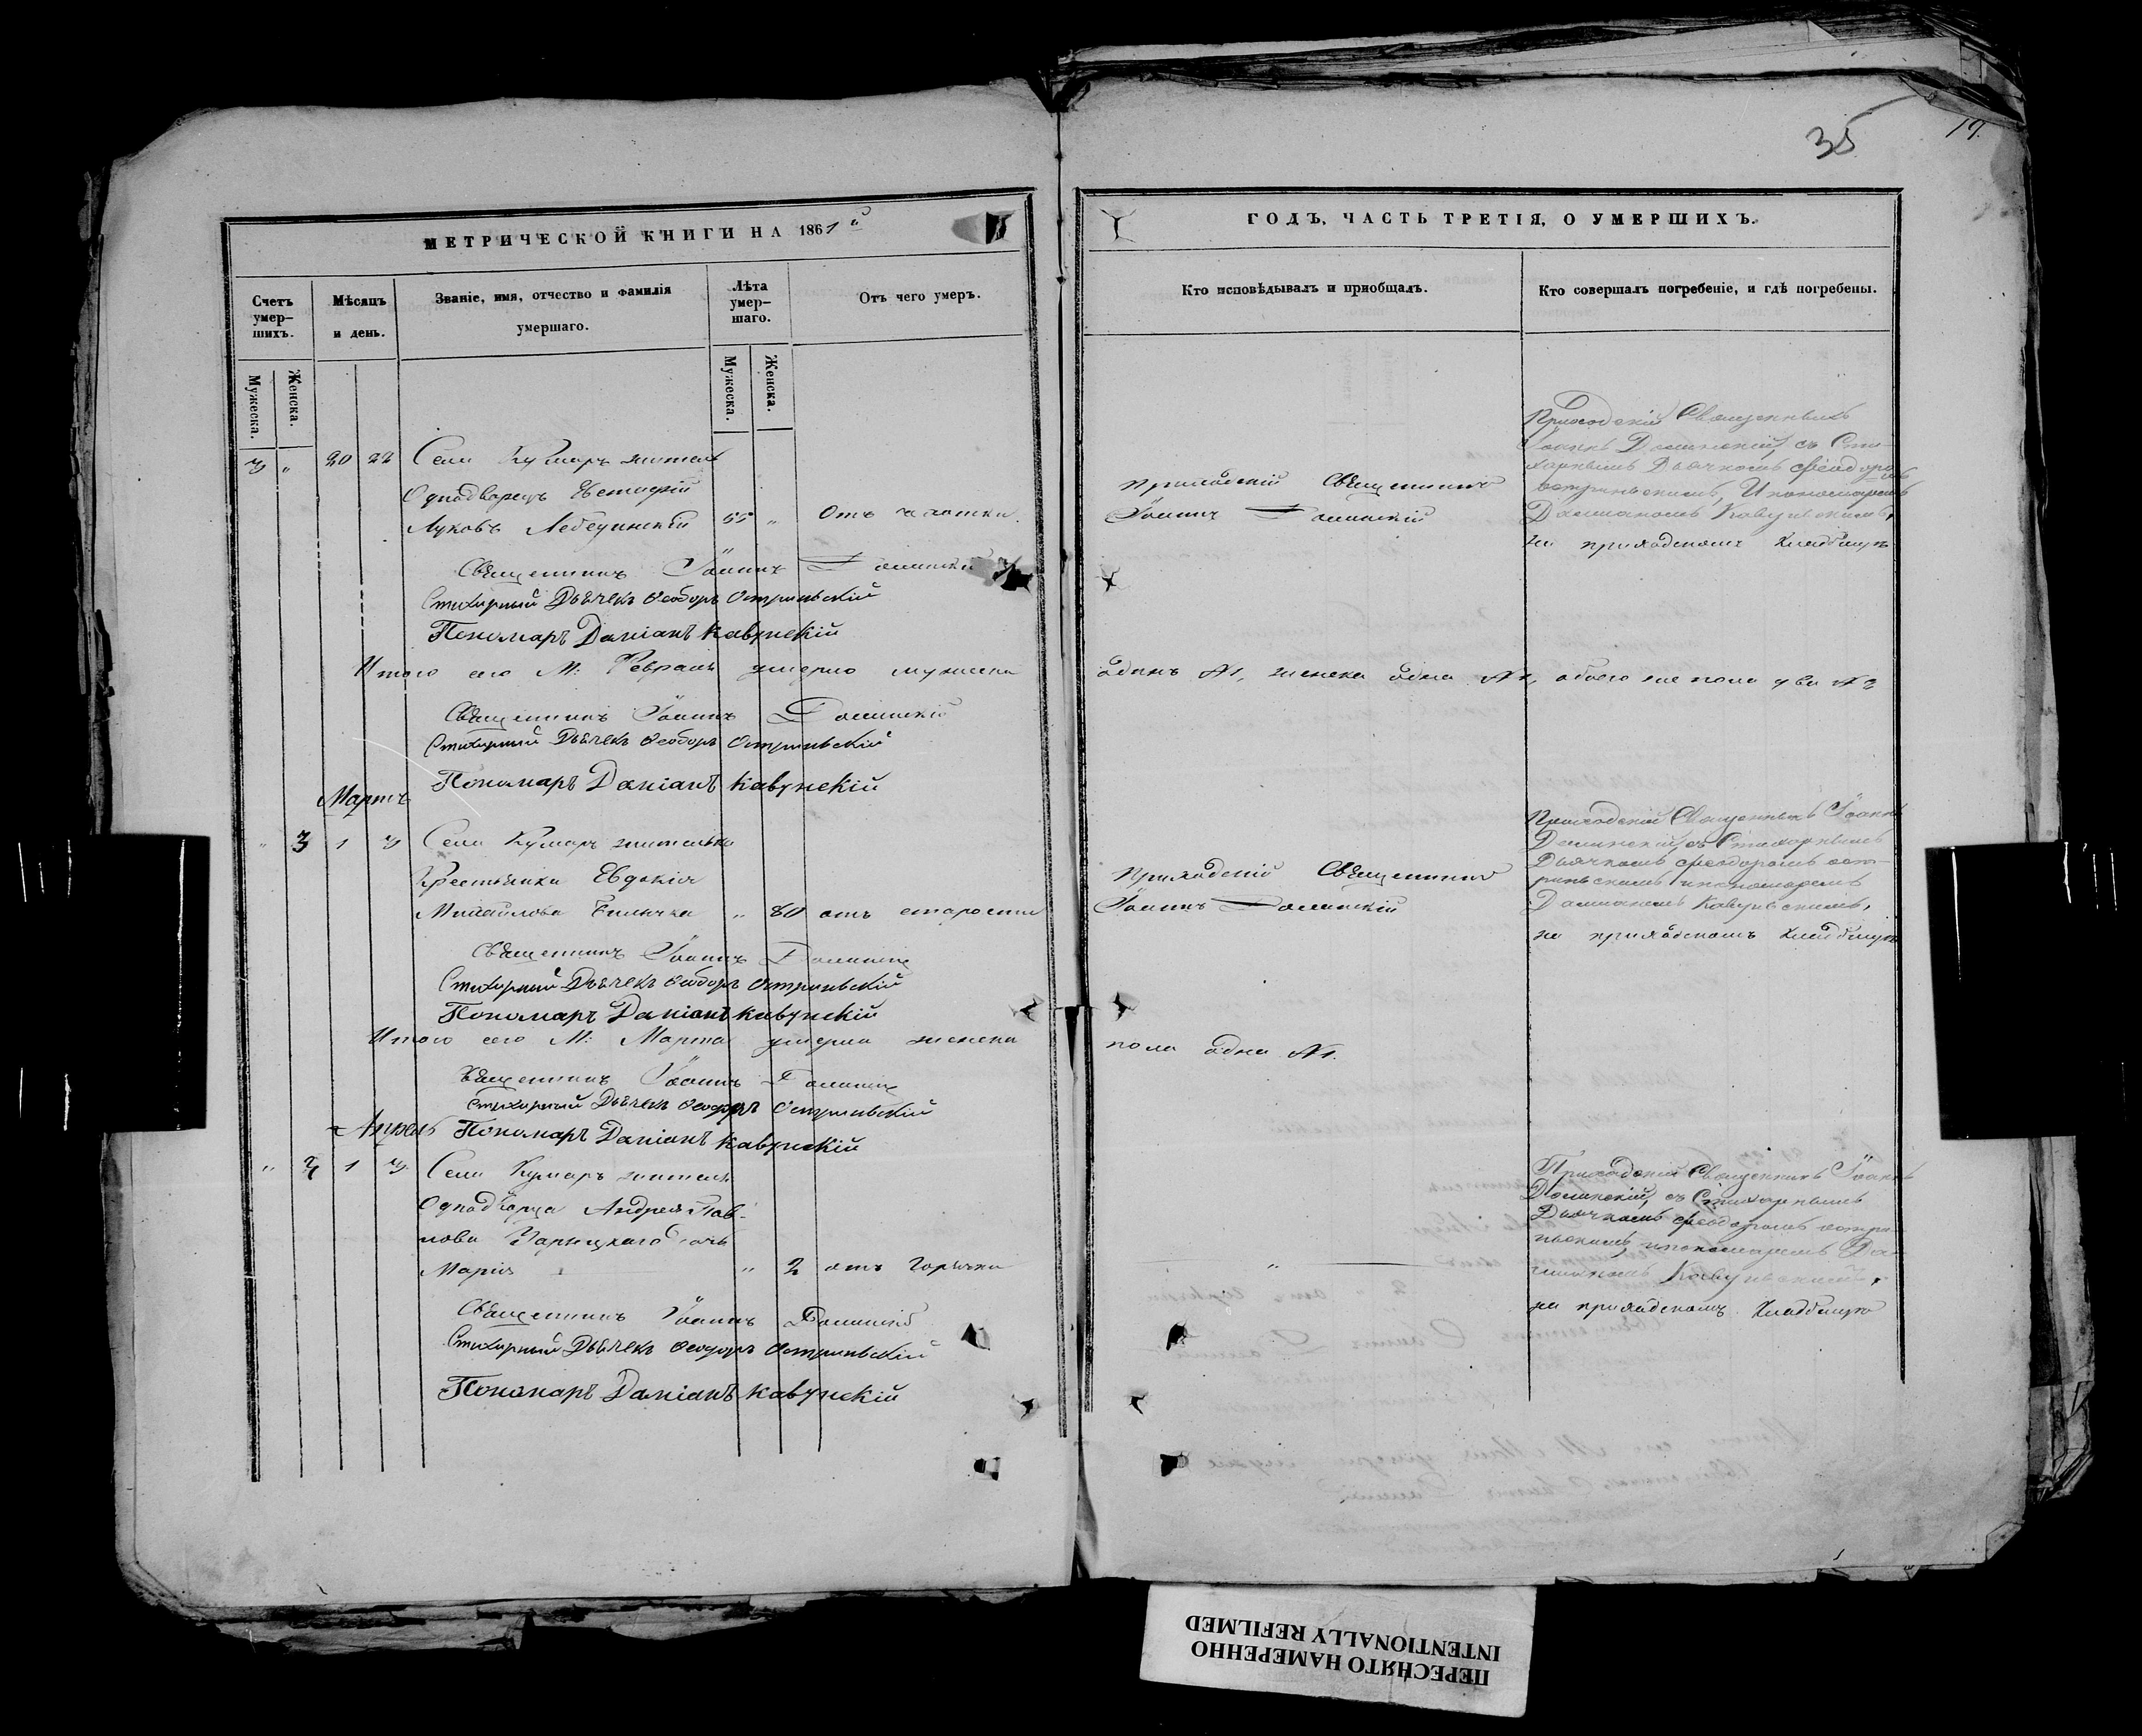 35
19.
МЕТРИЧЕСКОЙ КНИГИ НА 1861й
ГОДЪ, ЧАСТЬ ТРЕТІЯ, О УМЕРШИХЪ.
Счетъ умер-шихъ.
Мѣсяцъ и день.
Званіе, имя, отчество и фамилія
умершаго.
Лѣта умер-шаго.
Отъ чего умеръ.
Кто исповѣдывалъ и пріобщалъ.
Кто совершалъ погребеніе, и гдѣ погребены.
Мужеска.
Женска.
Мужеска.
Женска.
3 " 20 22 Села Кумаръ житель
Однодворецъ Евстафій
Луковъ Лебединскій 55 " Отъ чахотки
Приходскій Священникъ
Іоаннъ Долинскій
Приходскій Священникъ
Іоаннъ Долинскій, съ Сти-
харнымъ Дьячкомъ Феодоро
Остриньскимъ, И пономаремъ
Даміаномъ Кавунскимъ,
на приходскомъ кладбищѣ
Священникъ Іоаннъ Долинскій
Стихарный Дьячекъ Ѳеодоръ Остриньскій
Пономарь Даміанъ Кавунскій
Итого сего М: Февраля умерло мужеска
одинъ №1, женска одна №1, обоего же пола два №2
Священникъ Іоаннъ Долинскій
Стихарный Дьячекъ Ѳеодоръ Остриньскій
Пономарь Даміанъ Кавунскій
Мартъ
" 3 1 3 Села Кумаръ жителька
Крестьянка Евдокія
Михайлова " 80 отъ старости
Приходскій Священникъ
Іоаннъ Долинскій
Приходскій Священникъ Іоаннъ
Долинскій, съ Стихарнымъ
Дьячкомъ Феодоромъ Ост-
риньскимъ и пономаремъ
Даміаномъ Кавунскимъ,
на приходскомъ кладбищѣ
Священникъ Іоаннъ Долинскій
Стихарный Дьячекъ Ѳеодоръ Остриньскій
Пономарь Даміанъ Кавунскій
Итого сего М: Марта умерла женска
пола одна №1.
Священникъ Іоаннъ Долинскій
Стихарный Дьячекъ Ѳеодоръ Остриньскій
Апрель
Пономарь Даміанъ Кавунскій
" 1 3 Села Кумаръ жителя
Однодворца Андрея Пав-
лова дочь
Марія " 2 отъ горячки
"
Приходскій Священникъ Іоаннъ
Долинскій, съ Стихарнымъ
Дьячкомъ Феодоромъ Остри
ньскимъ, и пономаремъ Да-
міаномъ Кавунскимъ,
на приходскомъ кладбищѣ
Священникъ Іоаннъ Долинскій
Стихарный Дьячекъ Ѳеодоръ Остриньскій
Пономарь Даміанъ Кавунскій
ПЕРЕСНЯТО НАМЕРЕННО
INTENTIONALLY REFILMED